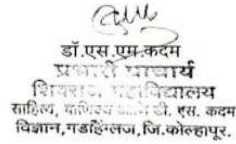 डॉ.एस.एम.कदम
प्रभारी प्राचार्य
शिवराज महाविद्यालय
साहित्य, वाणिज्य डी. एस. कदम
विज्ञान,गडहिंग्लज,जि.कोल्हापूर.